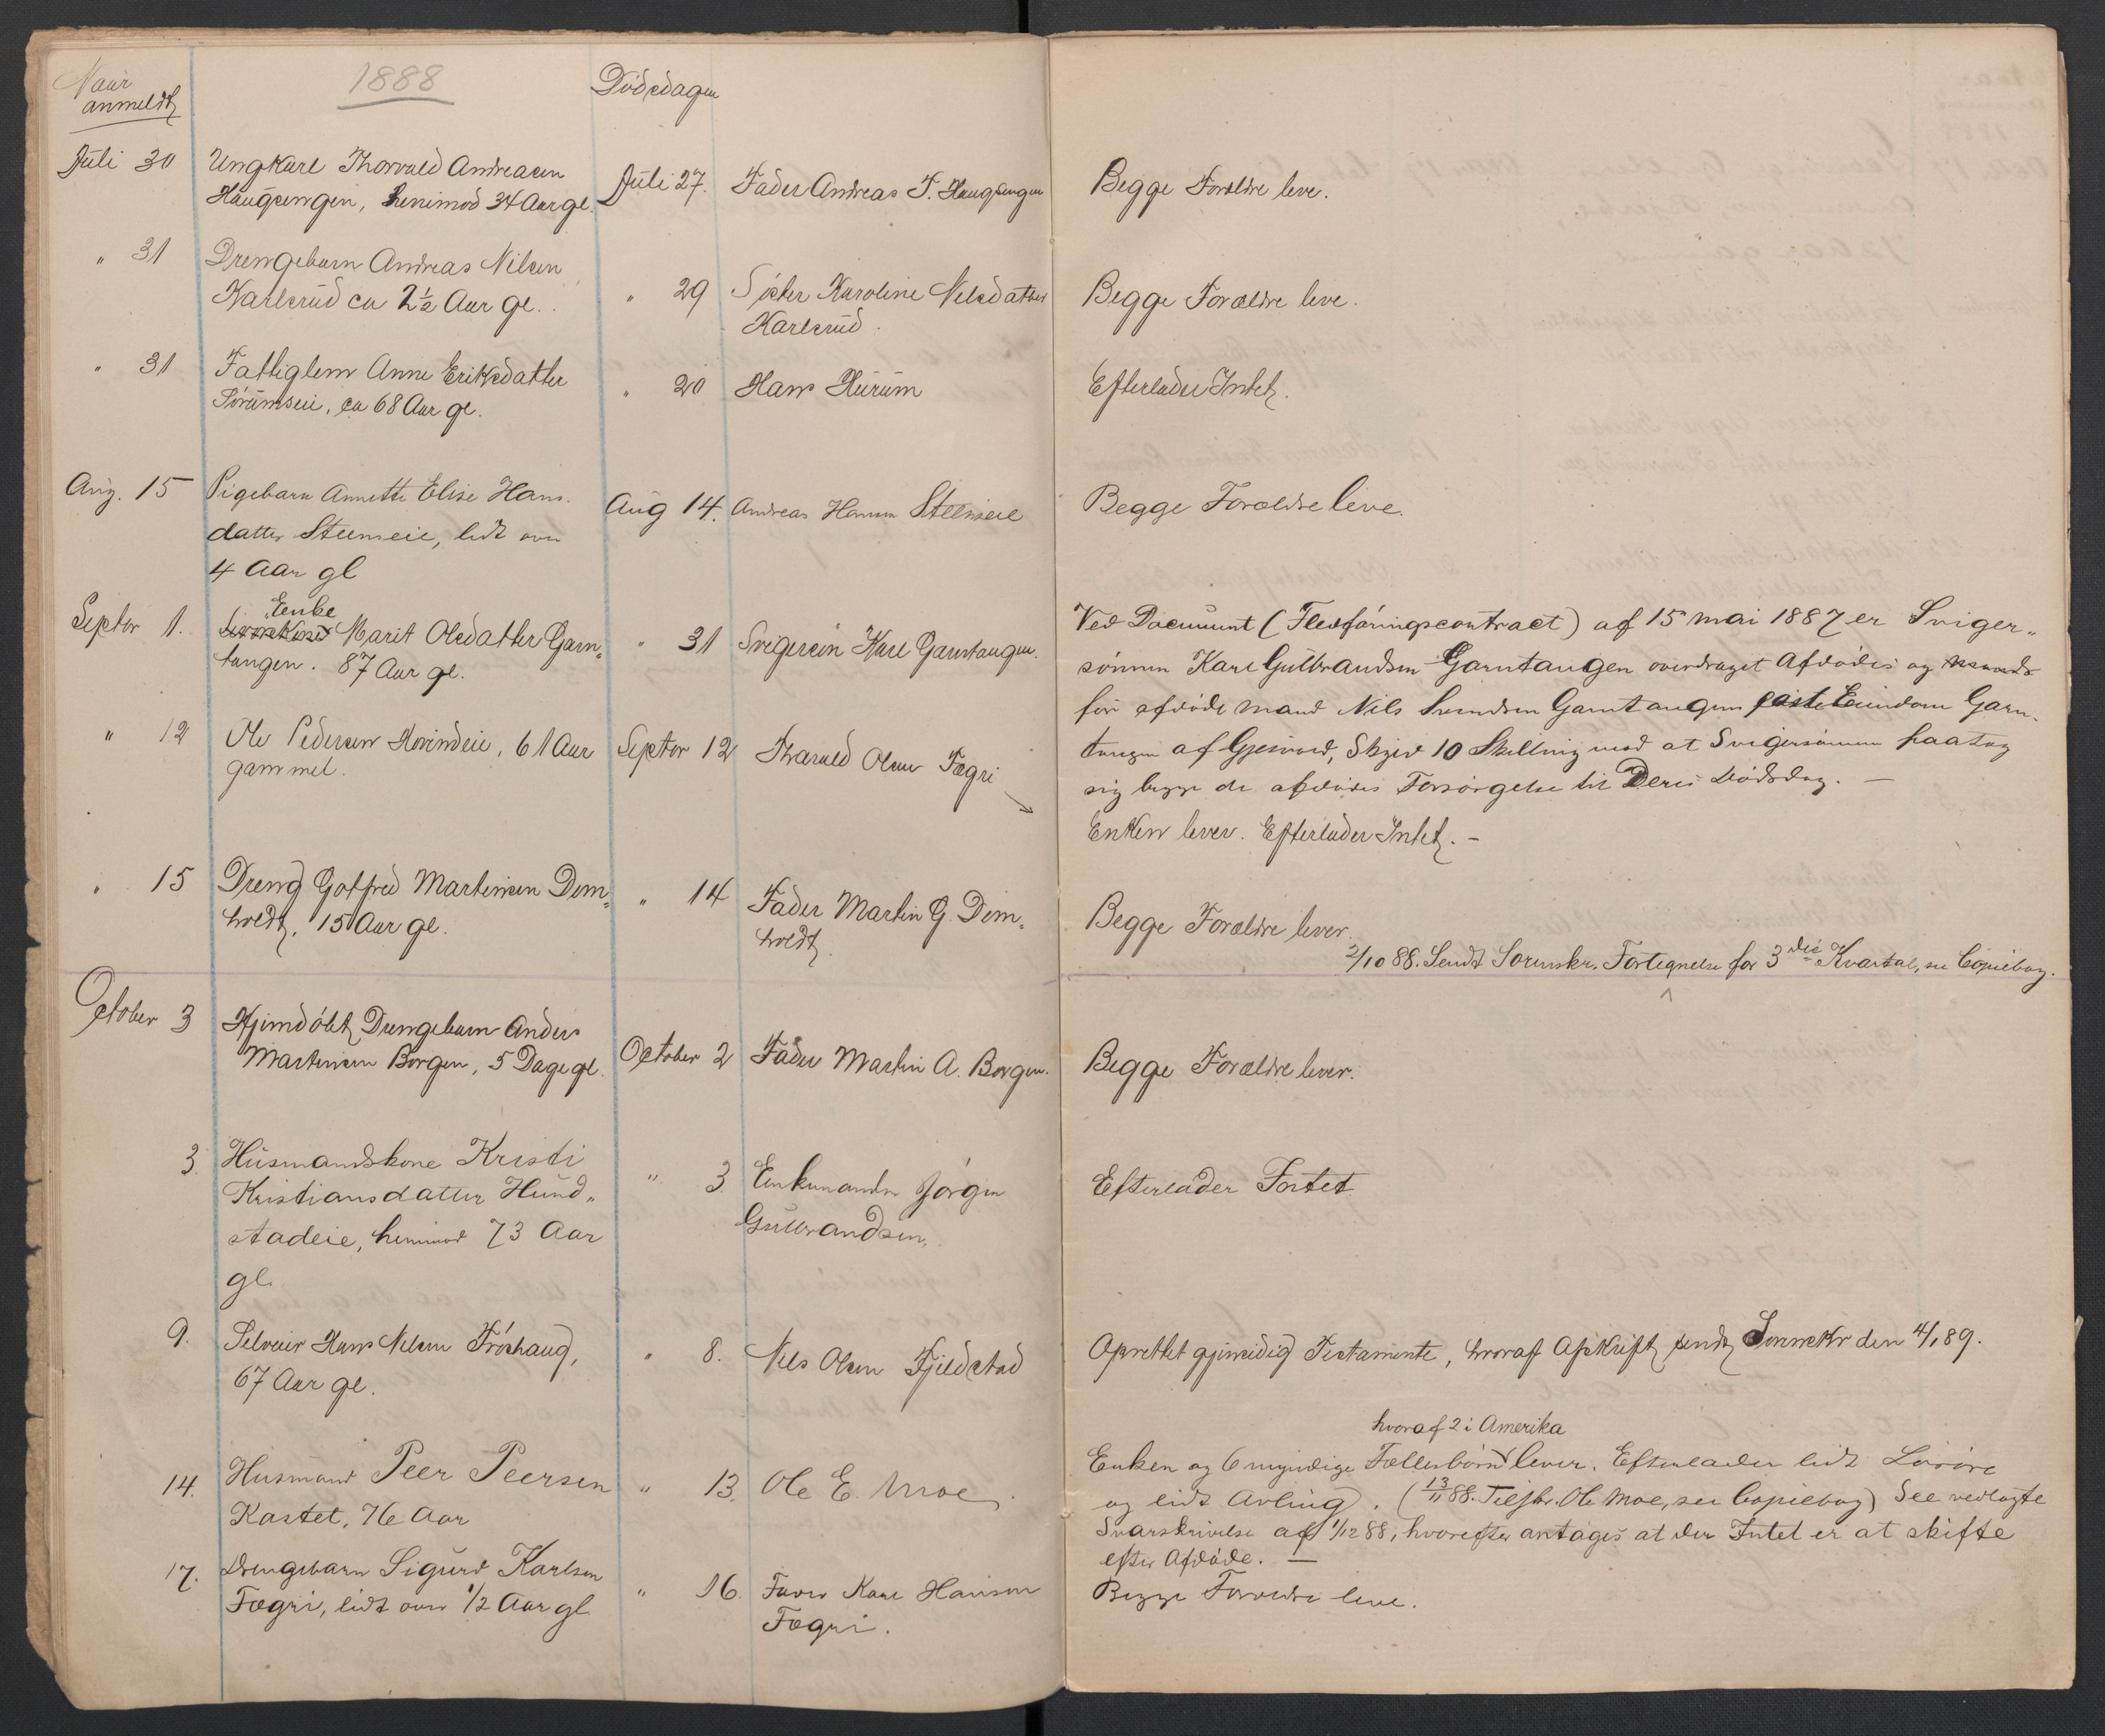 Naar
anmeldt
1888
Dödsdagen
Juli 30 Ungkarl Thorvald Andreasen
Haugsengen, henimod 34 Aar gl. Juli 27. Fader Andreas T. Haugsengen Begge Forældre leve.
" 31 Drengebarn Andreas Nilsen
Karlsrud ca 2 1/2 Aar gl. " 29 Sister Karoline Nilsdatter
Karlsrud. Begge Forældre leve.
" 31 Fattiglem Anne Eriksdatter
Sörumseie, ca 68 Aar gl. " 20 Hans Hurum Efterlader Intet.
Aug. 15 Pigebarn Annette Elise Hans-
datter Steenseie, lidt over
4 Aar gl Aug 14. Andreas Hansen Steenseie Begge Forældre leve.
Septbr 1. Enke
Marit Olsdatter Garn-
tangen. 87 Aar gl. " 31 Svigersön Karl Garntangen.
Ved Document (Fledföringscontract) af 15 mai 1887 er Sviger-
sönnen Karl Gulbrandsen Garntangen overdraget Afdødes og
för afdöde Mand Nils Svendsen Garntangens Eiendom Garn-
tangen af Gjesvold, Skyld 10 Skilling mod at Svigersönnen paatog
sig begge de afdödes Forsörgelse til Deres Dödsdag. —
" 12 Ole Pedersen Hovindeie, 61 Aar
gammel. Septbr 12 Harald Olsen Fægri
Enken lever. Efterlader Intet. —
" 15 Dreng Gotfred Martinsen Dom-
holdt, 15 Aar gl. " 14 Fader Martin G. Dom-
holdt. Begge Forældre lever.
2/10 88. Sendt Sorenskr. Fortegnelse for 3die Kvartal, se Copiebog.
October 3 Hjemdöbt Drengebarn Anders
Martinsen Borgen, 5 Dage gl. October 2 Fader Martin A. Borgen. Begge Forældre lever.
3. Husmandskone Kristi
Kristiansdatter Hund-
stadeie, henimod 73 Aar
gl. " 3. Enkemanden Jörgen
Gulbrandsen. Efterlader Intet
9. Selveier Hans Nilsen Fröshaug,
67 Aar gl. " 8. Nils Olsen Fjeldstad Oprettet gjensidig Testamente, hvoraf Afskrift sendt Sorenskr den 4/1 89.
14. Husmand Peer Peersen
Kastet, 76 Aar " 13. Ole E. Moe.
hvoraf 2 i Amerika
Enken og 6 myndige Fællesbörn lever. Efterlader lidt Lösöre
og lidt Avling. (13/11 88. Tilskr. Ole Moe, see Copiebog) See vedlagte
Svarskrivelse af 1/12 88, hvorefter antages at der Intet er at skifte
efter Afdöde. —
17. Drengebarn Sigurd Karlsen
Fægri, lidt over 1/2 Aar gl " 16. Fader Karl Hansen
Fægri. Begge Forældre leve.